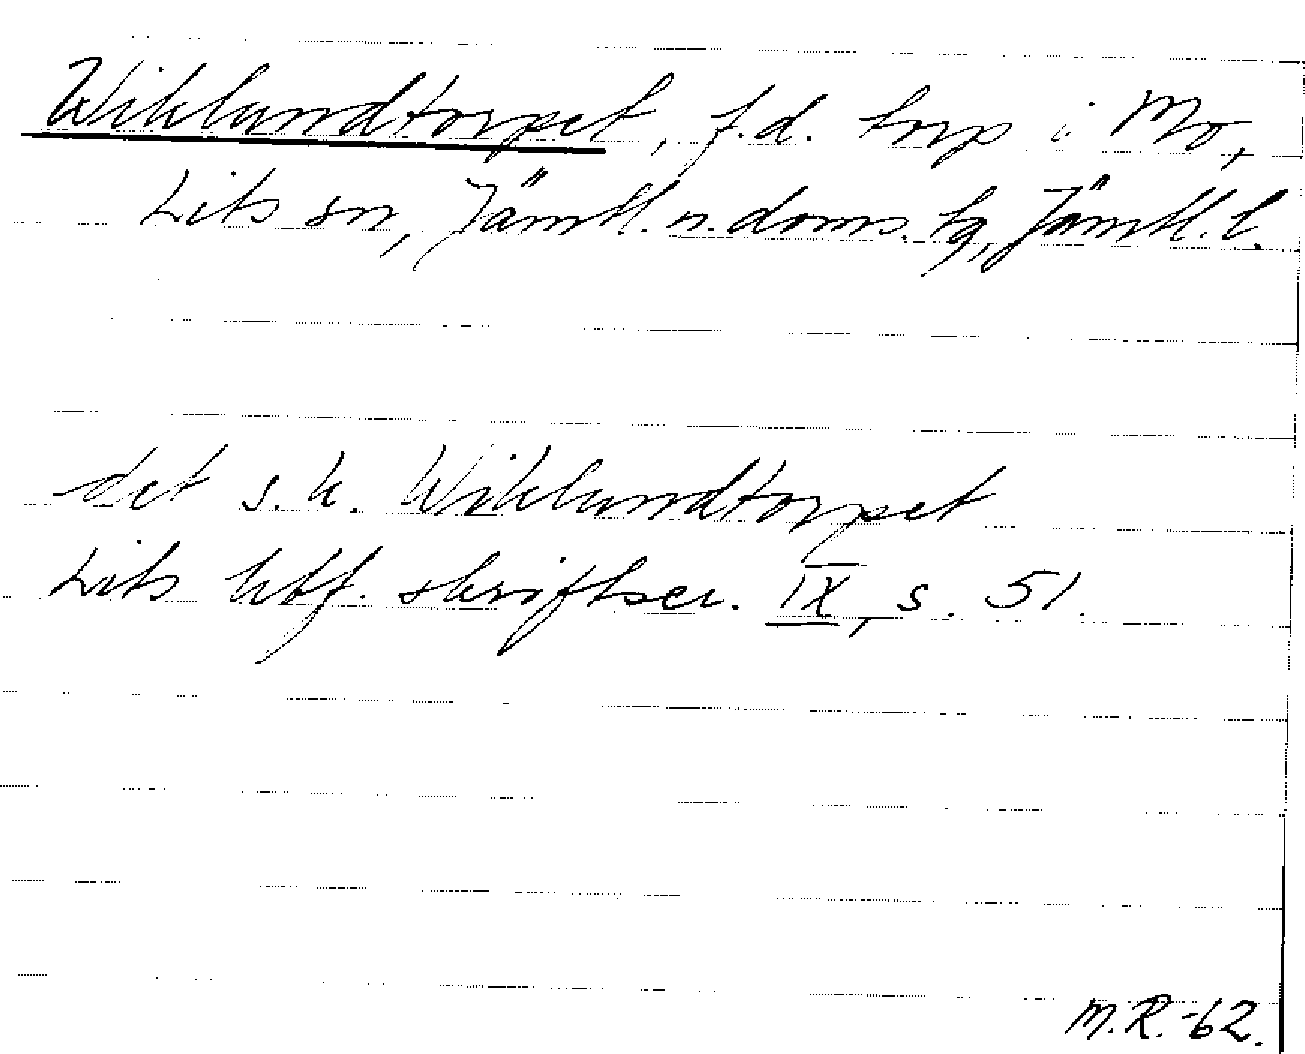 Wiklandtorpet, f.d. torp i Mo,
Lits sn, Jämtl. n. doms. tg, Jämtl. l.
det s.k. Wiklandtorpet
Lits hbf. skriftser. IX, s. 51.
M.R.-62.